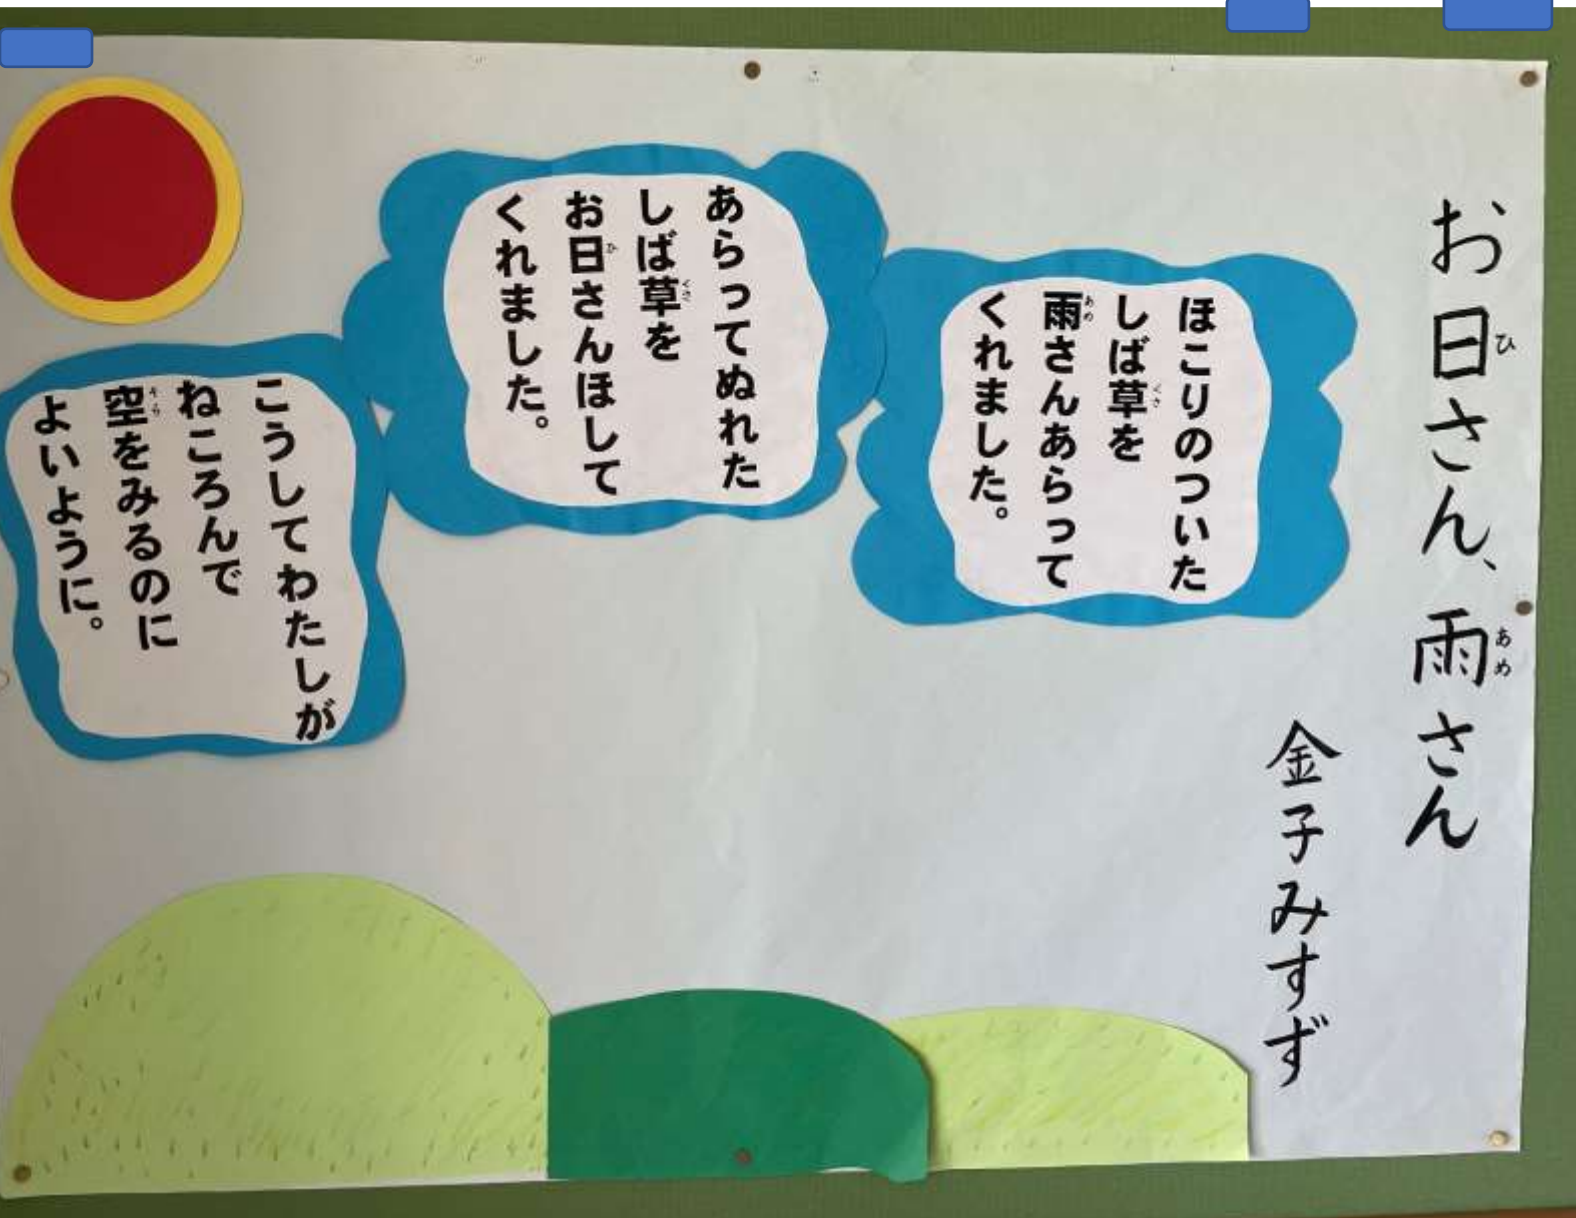 お日さん、雨さん
金子みすず
ほこりのついた
しば草を
雨さんあらって
くれました。
あらってぬれた
しば草を
お日さんほして
くれました。
こうしてわたしが
ねころんで
空をみるのに
よいように。